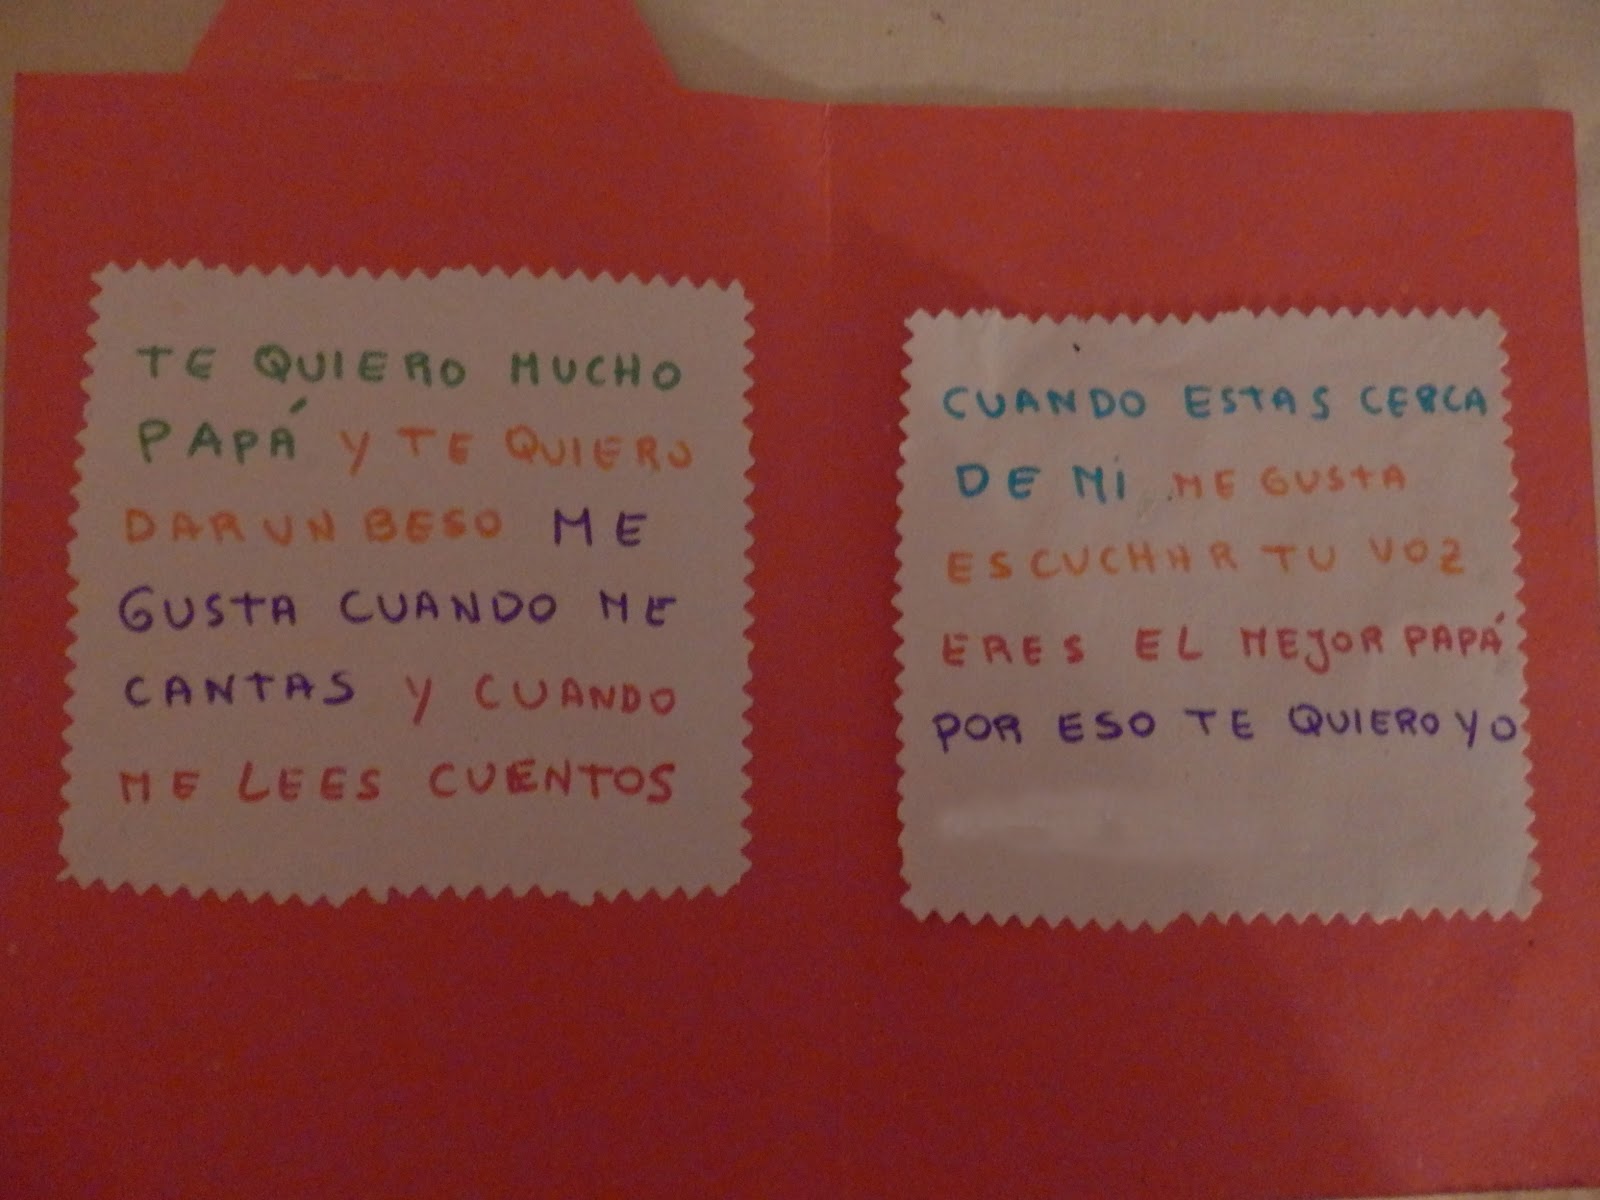 TE QUIERO MUCHO
PAPÁ Y TE QUIERO
DAR UN BESO ME
GUSTA CUANDO ME
CANTAS Y CUANDO
ME LEES CUENTOS
CUANDO ESTAS CERCA
DE MÍ ME GUSTA
ESCUCHAR TU VOZ
ERES EL MEJOR PAPÁ
POR ESO TE QUIERO YO